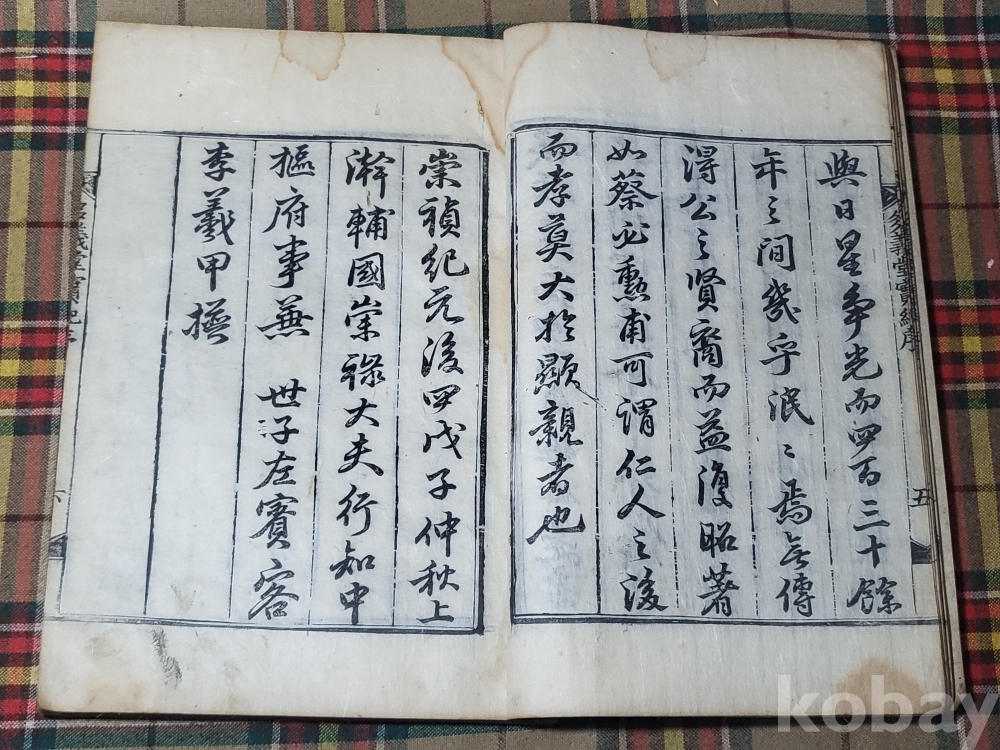 與日星爭光而四百三十餘
年之間幾乎泯〻焉無傳
得公之賢裔而益復昭著
如蔡必勳甫可謂仁人之後
而孝莫大於顯親者也
五
崇禎紀元後四戊子仲秋上
澣輔國崇祿大夫行知中
樞府事兼 世子左賓客
李羲甲撰
kobay